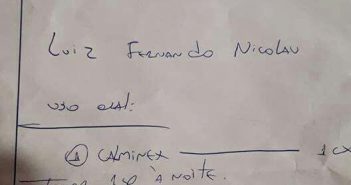 Luiz Fernando Nicolau
uso oral:
① CALMINEX ———— 1 cx
1 à noite.